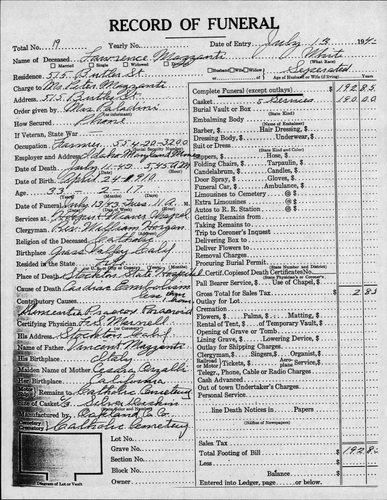 RECORD OF FUNERAL
Total No. 19 Yearly No. Date of Entry July 13 194
Name of Deceased Lawrence Mazzanti White
Married Single Widowed Divorced (What Race)
Residence 515 Butler St. Husband Wife Seperated
Charge to Mrs Peter Mazzanti
Address 515 Butler St.
Order given by Mrs Paladini
How Secured Phone
If Veteran, State War
Occupation Farmer 554-20-3200
Social Security Number
Employer and Address Idaho Maryland Mines
Date of Death July 11-43 5:45 A.M.
Date of Birth April 24 1910
Age 33 - 2 - 17
Date of Funeral July 13 43 Tues. 11 A.M.
Services at
Clergyman Rev. William Horgan
Religion of the Deceased Catholic
Birthplace Grass Valley Calif
Resided in the State
Place of Death Stockton State Hospital
Cause of Death Cardiac Embolism
less than hour
Contributory Causes
Dementia Praecox Paranoid
Certifying Physician
His Address Stockton Calif
Name of Father Vincent Mazzanti
His Birthplace Italy
Maiden Name of Mother
Her Birthplace California
Body Remains to Catholic Cemetery
Size of Casket 6/3 Silver
Manufactured by Oakland C. Co.
Cemetery Catholic Cemetery
Lot No.
Grave No.
Section No.
Block No.
Owner
Diagram of Lot or Vault
Complete Funeral (except outlays) $ 192 85
Casket & Services 190 00
Burial Vault or Box
(State Kind)
Embalming Body
(Name of Embalmer)
Barber, $ Hair Dressing, $
Dressing Body, $ Underwear, $
Suit or Dress
(State Kind and Color)
Slippers, $ Hose, $
Folding Chairs, $ Tarpaulin, $
Candelabrum, $ Candles, $
Door Spray, $ Gloves, $
Funeral Car, $ Ambulance, $
Limousines to Cemetery @ $
Extra Limousines @ $
Autos to R. R. Station @ $
Getting Remains from
Taking Remains to
Trip to Coroner's Inquest
Delivering Box to
Deliver Flowers to
Removal Charges
Procuring Burial Permit
(State Number and District)
Certif. Copies of Death Certificates No.
(State Physician's or Coroner's)
Pall Bearer Service Use of Chapel, $
Gross Total for Sales Tax $ 2 85
Outlay for Lot
Cremation
Flowers, $ Palms, $ Matting, $
Rental of Tent, $ of Temporary Vault, $
Opening of Grave or Tomb
Lining Grave, $ Lowering Device, $
Outlay for Shipping Charges
Clergyman, $ Singers, $ Organist, $
Railroad or Motor Tickets, $ Aeroplane Service, $
Telegr., Phone, Cable or Radio Charges
Cash Advanced
Out of town Undertaker's Charges
Personal Service
line Death Notices in Papers
(Names of Newspapers)
Sales Tax
Total Footing of Bill $ 192 85
Less
Balance $
Entered into Ledger, page or below.